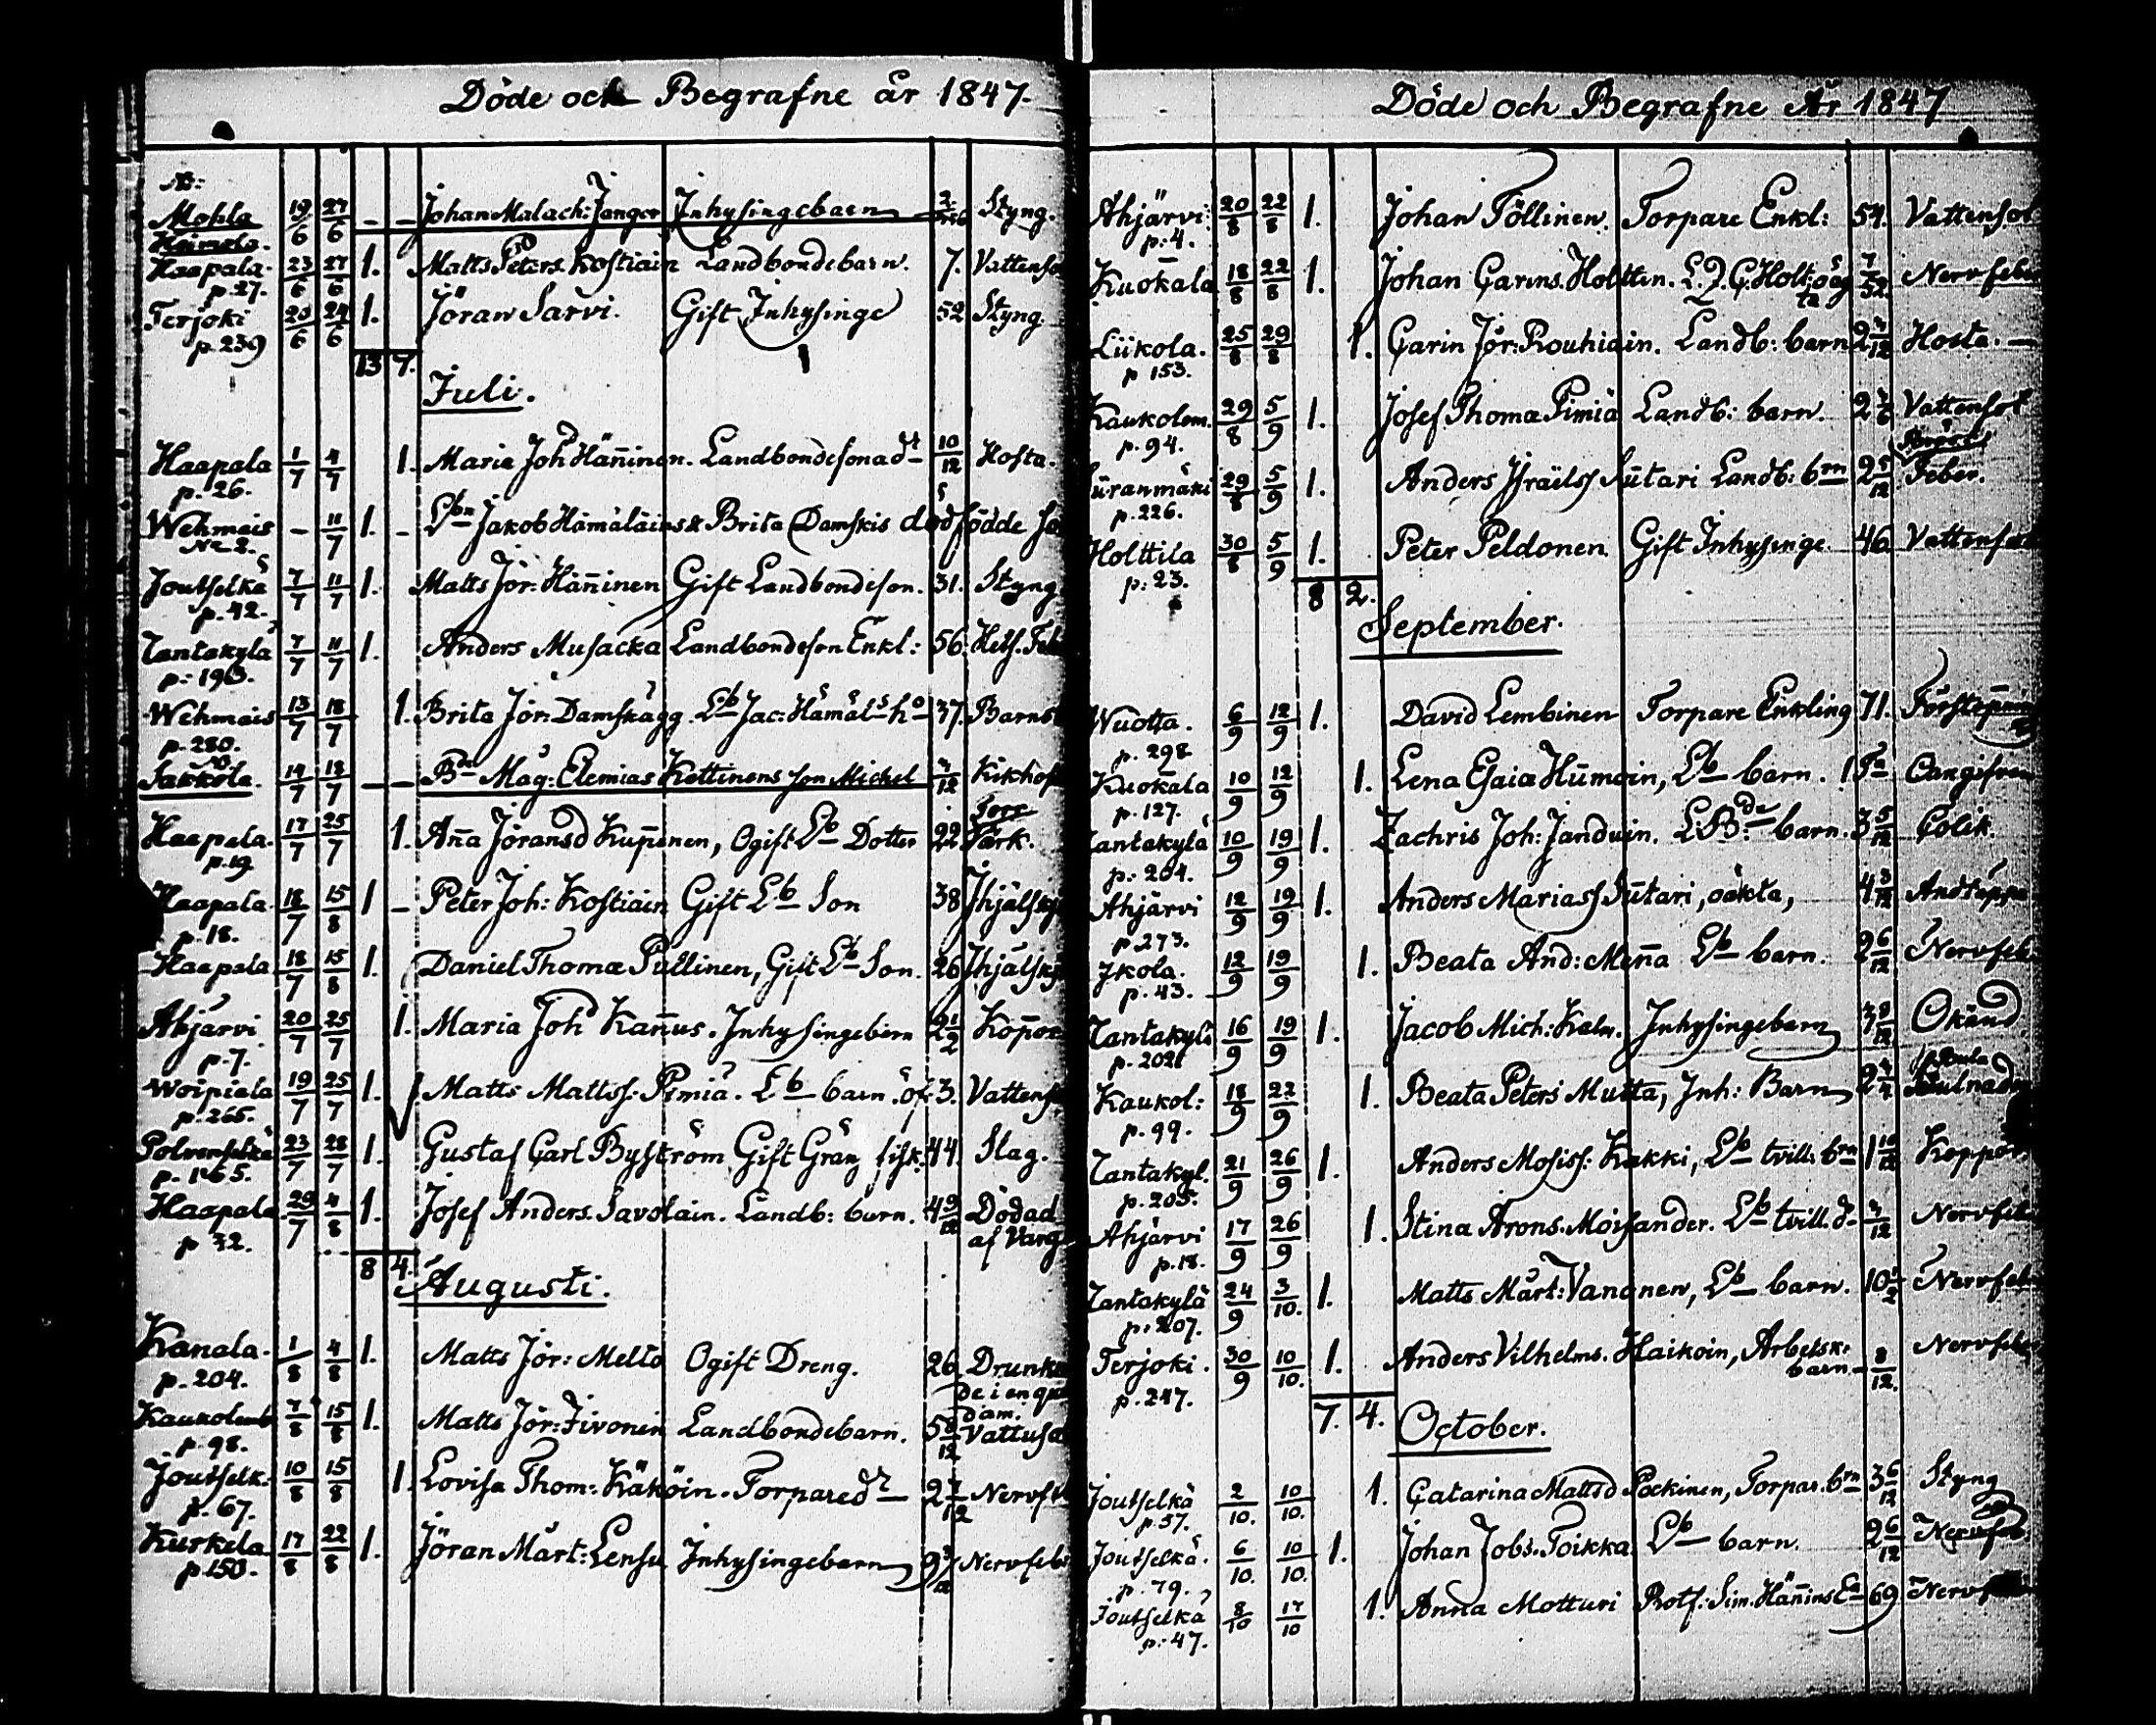 Döde och Begrafne år 1847.
No:
Mohla 19/6 27/6 - - Johan Malach: Janger Inhysingebarn Styng.
Heimola.
Haapala. 23/6 27/6 1. Matts Peters. Kostiain Landbondebarn. 7. Vattenso
p. 27.
Terjoki 20/6 24/6 1. Jöran Sarvi. Gift Inhysinge 52 Styng
p. 239
13 7.
Juli.
Haapala 1/7 4/7 1. Maria Joh Häninen. Landbondesonadr 10/12 Hosta.
p. 26.
Wehmais - 11/7 1. - Lbn Jakob Hämäläins & Brita Damskis dödfödde so
No 2.
Joutselkä 7/7 11/7 1. Matts Jör: Häninen Gift Landbondeson. 31. Styng
p. 42.
Tantakylä 7/7 11/7 1. Anders Musacka Landbondeson Enkl: 56. Hets. Feb
p. 193.
Wehmais 13/7 18/7 1. Brita Jör: Damskägg Lb Jac: Hämäls ho 37. Barns
p. 280.
Sakkola. 14/7 18/7 - - Bdn Mag: Elemias Kettinens son Michel Kikhost
Haapala. 17/7 25/7 1. Aña Joransd Kupinen, Ogift Lb Dotter 22 Torr Värk.
p. 19
Haapala. 18/7 15/8 1 - Peter Joh: Kostiain Gift Lb Son 38 Ihjälsk
p. 18.
Haapala 18/7 15/8 1. Daniel Thomæ Pullinen, Gift Lb Son. 26 Ihjälsk
Ahjärvi 20/7 25/7 1. Maria Joh Kañus. Inhysingebarn 2 1/2 Kopor
p. 7.
Woipiala 19/7 25/7 1. Matts Mattss: Pimiä. Lb barn. öf. 3. Vattens
p. 265.
Polvenselkä 23/7 28/7 1. Gustaf Carl Byström Gift Gräns fisk. 44. Slag.
p. 165.
Haapala 29/7 4/8 1. Josef Anders. Savolain. Landb: barn. 4 9/12 Dödad
p 32. af Varg
8 4. Augusti.
Kanala. 1/8 4/8 1. Matts Jör: Mello Ogift Dreng. 26. Drunk
p. 204. de i en
dam.
Kaukolemb 7/8 15/8 1. Matts Jör: Tivonen Landbondebarn. 5 8/12 Vattuso
p. 98.
Joutselk: 10/8 15/8 1. Lovisa Thom: Käköin. Torparedr 2 7/12 Nervfe
p. 67.
Kurkela 17/8 22/8 1. Jöran Märt: Lensu Inhysingebarn Nervfeb
p. 150.
Döde och Begrafne År 1847
Ahjärvi: 20/8 22/8 1. Johan Töllinen. Torpare Enkl: 54. Vattensot
p: 4.
Kuokala 18/8 22/8 1. Johan Carins. Holttin. Nervfeber
Liikola. 25/8 29/8 1. Carin Jör: Rouhiain. Landb: barn Hosta.
p 153.
Kaukolem. 29/8 5/9 1. Josef Thomæ Pimiä Landb: barn. Vattensot
p. 94.
Suranmäki 29/8 5/9 1. Anders Israëlss Sutari Landb: brn 2 5/12 Feber.
p. 226.
Holttila 30/8 5/9 1. Peter Peldonen Gift Inhysinge. 46. Vattensot
p: 23.
8 2.
September.
Wuotta. 6/9 12/9 1. David Lembinen Torpare Enkling 71.
p. 298
Kuokala 10/9 12/9 1. Lena Esaiæ Humoin, Lb barn.
p. 127.
Tantakylä 10/9 19/9 1. Zachris Joh: Janduin. barn. 3 5/12 Colik.
p: 204.
Ahjärvi 12/9 19/9 1. Anders Mariass Sutari, oäkta, 4 3/12 Andtäppa
p 273.
Ikola. 12/9 19/9 1. Beata And: Meña Lb barn. 2 6/12 Nervfeb
p. 43.
Tantakylä 16/9 19/9 1. Jacob Mich: Kalm. Inhysingebarn Okänd
p. 202
Kaukol: 18/9 22/9 1. Beata Peters Mutta, Inh: Barn
p. 99.
Tantakyl. 21/9 26/9 1. Anders Mosiss: Kakki, Lb tvill: brn 1 10/12 Koppor
p. 205.
Ahjärvi 17/9 26/9 1. Stina Arons. Moisander. Lb tvill. d Nervfeb
p. 18.
Tantakylä 24/9 3/10. 1. Matts Märt: Vanonen, Lb barn. 10 1/2 Nervfeb
p. 207.
Terjoki. 30/9 10/10. 1. Anders Vilhelms. Haikoin, Arbetsk: barn 8/12. Nervfeb
p. 247.
7. 4. October.
Joutselkä 2/10. 10/10. 1. Catarina Mattsd Pockinen, Torpar. brn 3 6/12 Styng
p. 57.
Joutselkä. 6/10. 10/10. 1. Johan Jobs. Toikka Lb barn. 2 6/12 Nervfeb
p. 79.
Joutselkä 8/10 17/10 1. Anna Motturi Rotf: Sim. Häñins Ea 69 Nerv
p: 47.